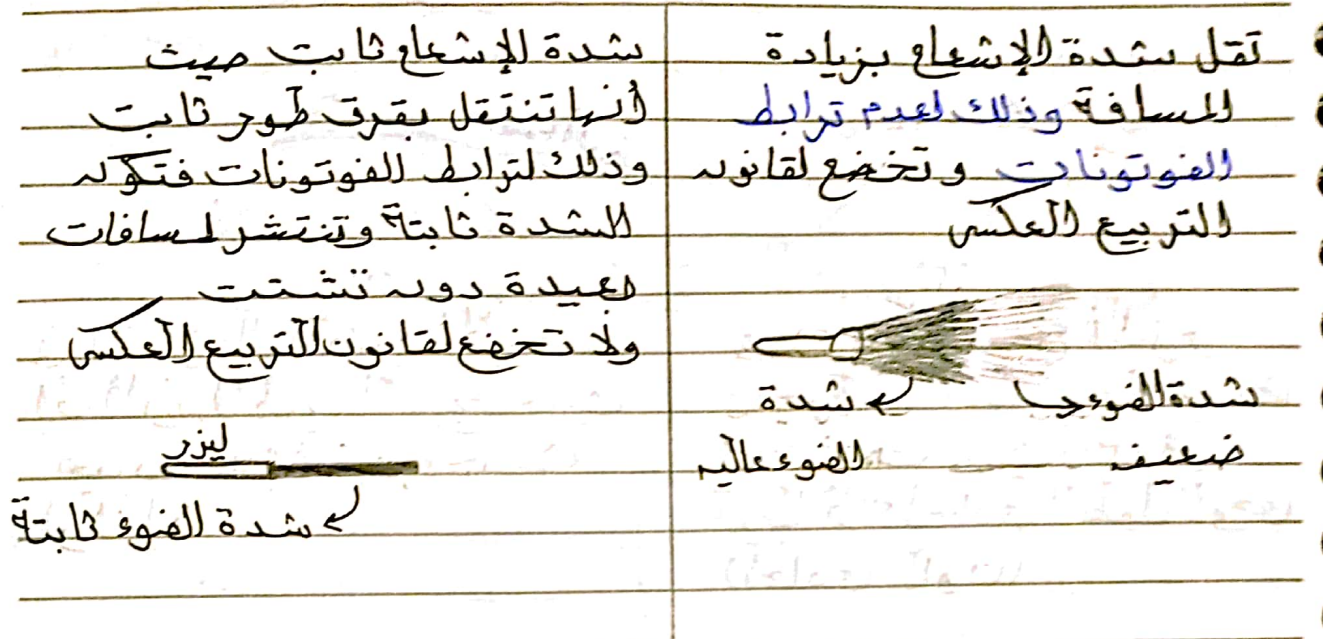 تقل شدة الإشعاع بزيادة
المسافة وذلك لعدم ترابط
الفوتونات وتخضع لقانون
التربيع العكسى
شدة الضوء
ضعيف
شدة
الضوء عاليه
شدة الإشعاع ثابت حيث
أنها تنتقل بفرق طور ثابت
وذلك لترابط الفوتونات فتكون
الشدة ثابتة وتنتشر لمسافات
بعيدة دون تشتت
ولا تخضع لقانون التربيع العكسى
ليزر
شدة الضوء ثابتة